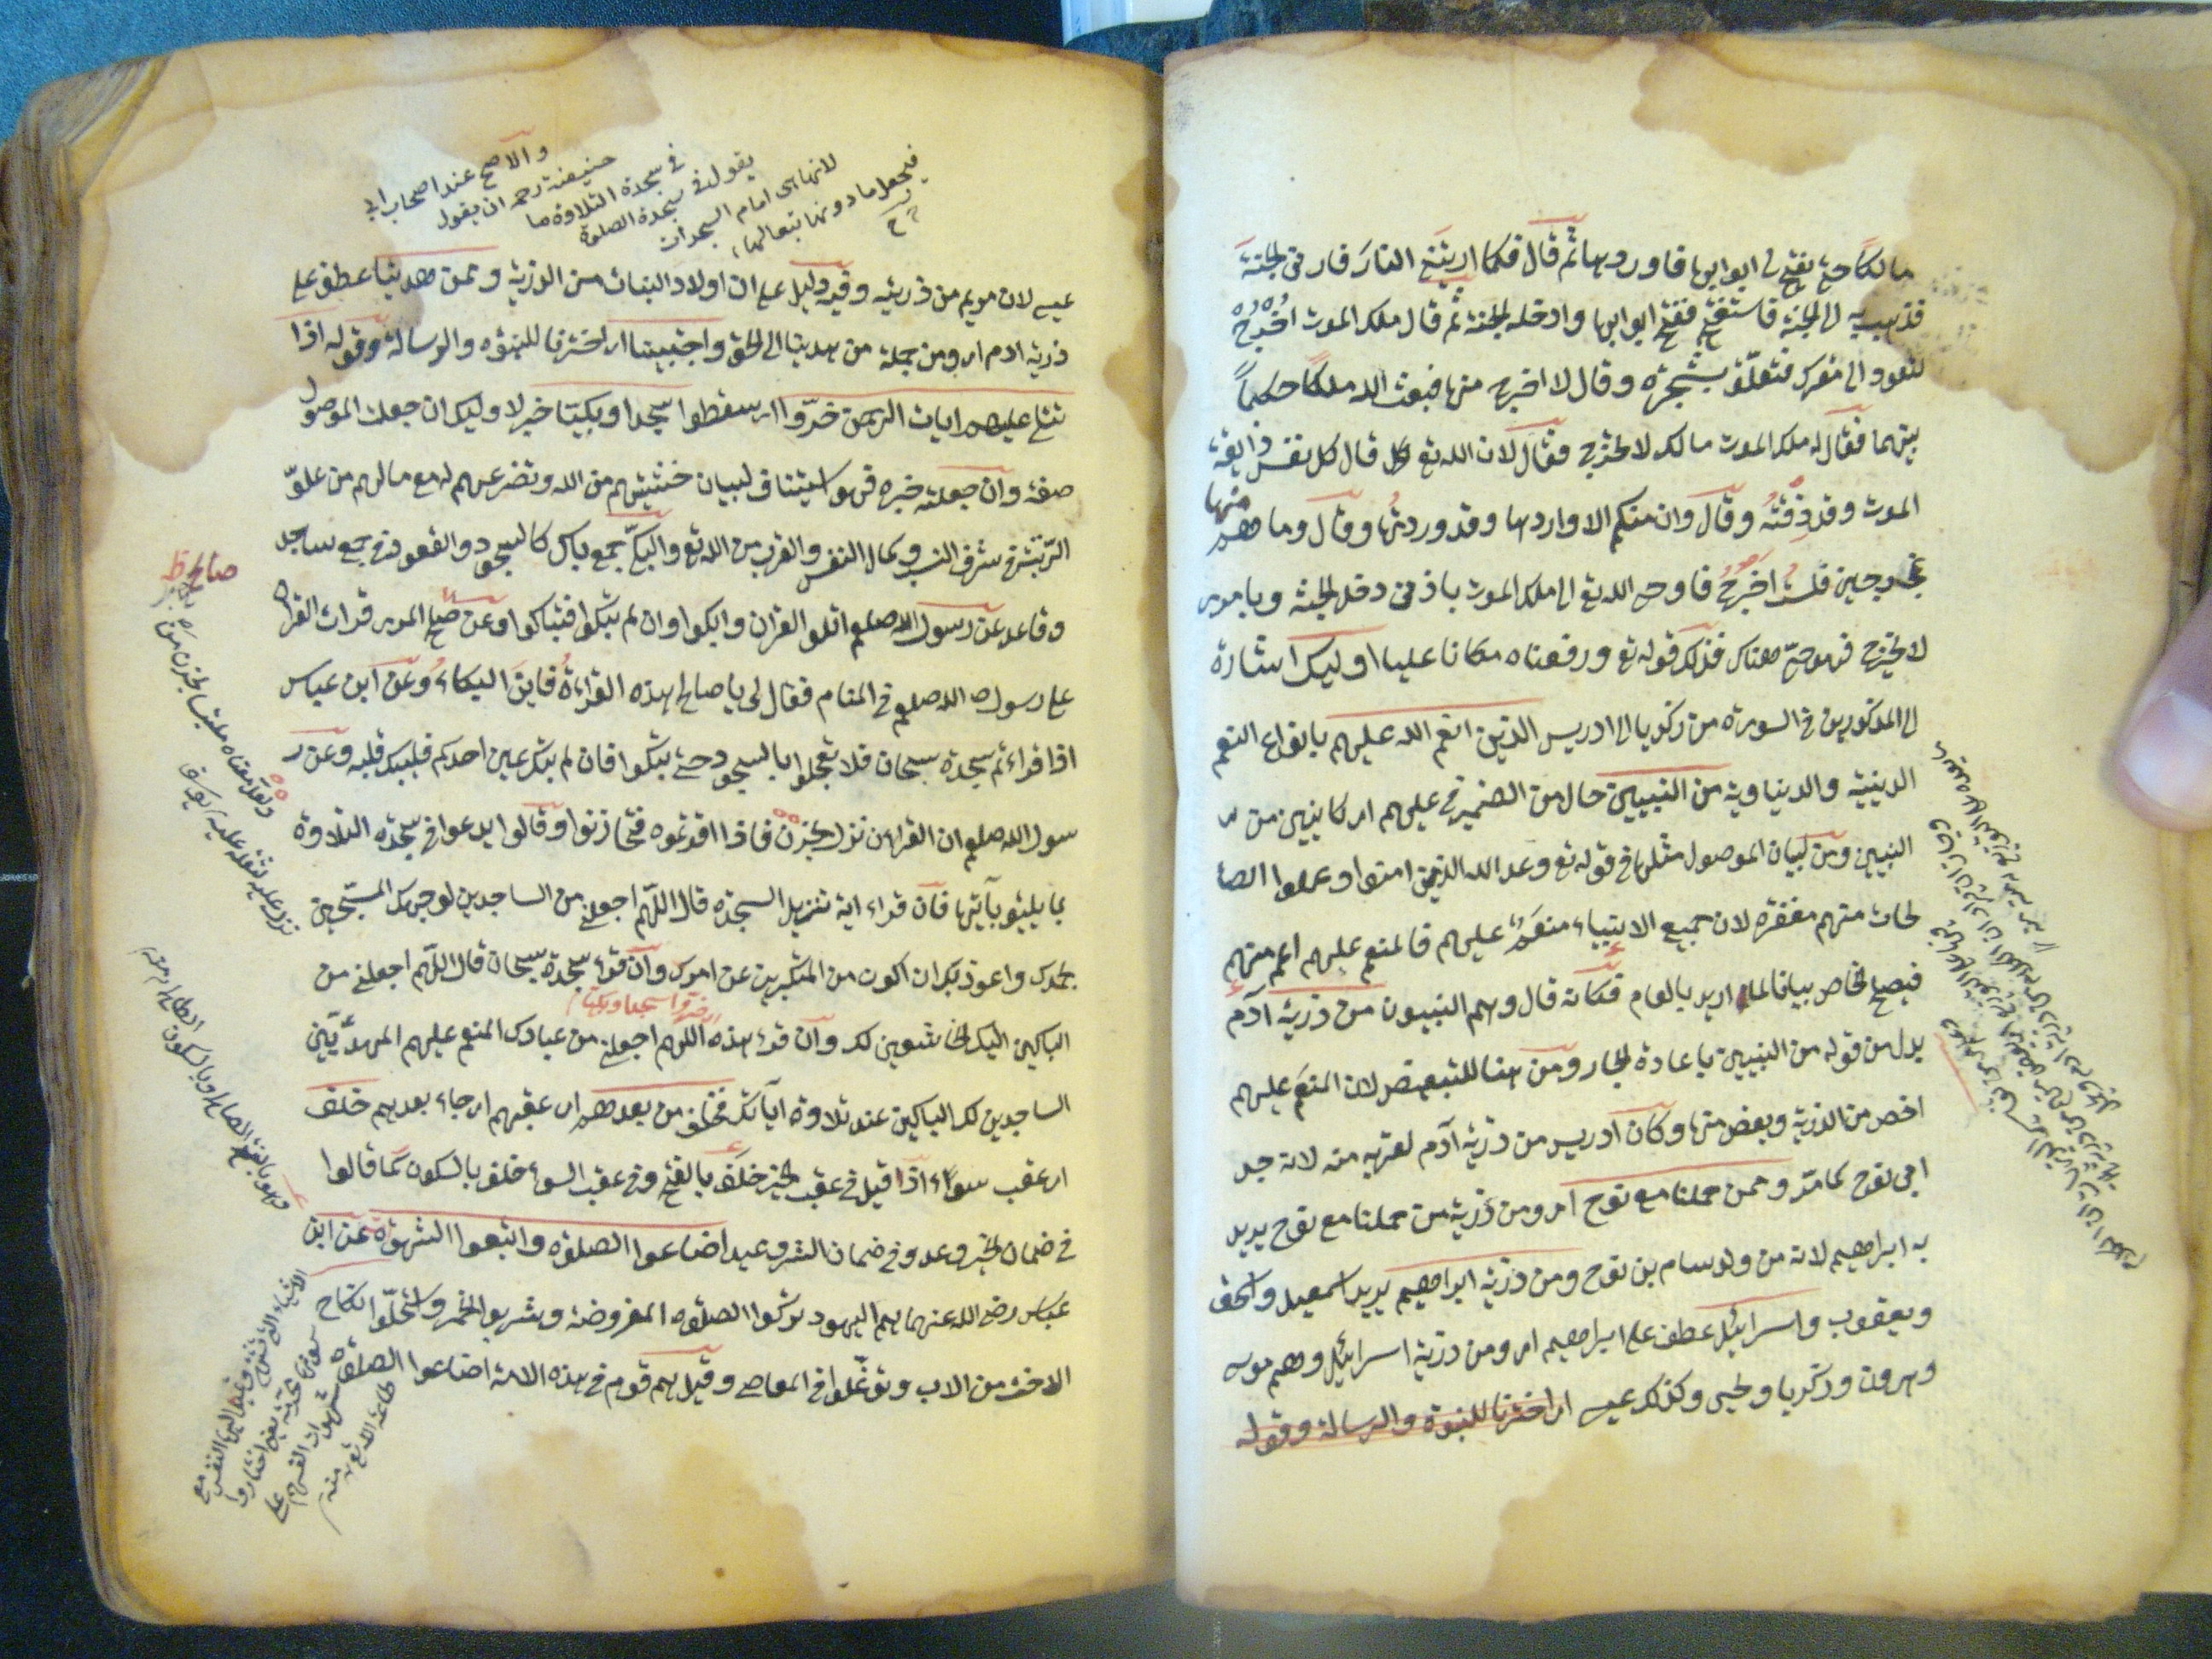 مالكا حتى يفتح لى ابوابها فاوردوها ثم قال فكما اريتنى النار فارنى الجنة
فذهب به الى الجنة فاستفتح ففتح ابوابها وادخله الجنة ثم قال ملك الموت اخرج
لتعود الى مقرك فتعلق بشجرة وقال لا اخرج منها فبعث الله ملكا حكما
بينهما فقال له ملك الموت مالك لا تخرج فقال لان الله تع قال كل نفس ذايقة
الموت وقد ذقته وقال وان منكم الا واردها وقد وردتها وقال وما هم منها
بمخرجين فلست اخرج فاوحى الله تع الى ملك الموت باذنى دخل الجنة وبامرى
لا يخرج فهو حى هناك فذلك قوله تع ورفعناه مكانا عليا اوليك اشارة
الى المذكورين فى السورة من زكريا الى ادريس الذين انعم الله عليهم بانواع النعم
الدينية والدنياوية من النبيين حال من الضمير فى عليهم اى كاينين من
النبيين ومن لبيان الموصول مثلها فى قوله تع وعد الله الذين امنوا وعملوا الصا
لحات منهم مغفرة لان جميع الانبياء منعم عليهم فالمنعم عليهم اعم منهم
فيصح الخاص بيانا لما اريد بالعام فكانه قال وهم النبيون من ذرية آدم
بدل من قوله من النبيين باعادة الجار ومن هنا للتبعيض لان المنعم عليهم
اخص من الذرية وبعض منها وكان ادريس من ذرية آدم لقربه منه لانه جد
ابى نوح كما مر وممن حملنا مع نوح اى ومن ذرية من حملنا مع نوح يريد
به ابراهيم لانه من ولد سام بن نوح ومن ذرية ابراهيم يريد اسمعيل واسحق
ويعقوب واسرائيل عطف على ابراهيم اى ومن ذرية اسرائيل وهم موسى
وهرون وزكريا ويحيى وكذلك عيسى اى اخترنا للنبوة والرسالة وقوله
والاصح عند اصحاب ابى
حنيفة رحمه ان يقول
فى سجدة التلاوة ما
يقول فى سجدة الصلوة
لانها هى امام السجدات
فيجعل ما دونها تبعا لها
عيسى لان مريم من ذريته وفيه دليل على ان اولاد البنات من الذرية وممن هدينا عطف على
ذرية ادم اى ومن جملة من هدينا الى الحق واجتبينا اى اخترنا للنبوة والرسالة وقوله اذا
تتلى عليهم ايات الرحمن خروا اى سقطوا سجدا وبكيا خبر لاوليك ان جعلت الموصول
صفة وان جعلته خبره فهو استيناف لبيان خشيتهم من الله وتضرعهم له مع مالهم من علو
الرتبة شرف النسب وكمال النفس والقرب من الله تع والبكى جمع باك كالسجود والقعود فى جمع ساجد
وقاعد عن رسول الله صلعم اتلوا القران وابكوا وان لم تبكوا فتباكوا وعن صالح المرى قرات القران
على رسول الله صلعم فى المنام فقال لى يا صالح هذه القراءة فاين البكاء وعن ابن عباس
اذا قراءتم سجدة سبحان فلا تعجلوا بالسجود حتى تبكوا فان لم تبك عين احدكم فليبك قلبه وعن ر
سول الله صلعم ان القران نزل بحزن فاذا قراتموه فتحازنوا وقالوا يدعوا فى سجدة التلاوة
بما يليق بآيتها فان قراء اية تنزيل السجدة قال اللهم اجعلنى من الساجدين لوجهك المسبحين
بحمدك واعوذ بك ان اكون من المتكبرين عن امرك وان قراء سجدة سبحان قال اللهم اجعلنى من
الباكين اليك الخاشعين لك وان قراء هذه اللهم اجعلنى من عبادك المنعم عليهم المهديين
الساجدين لك الباكين عند تلاوة آياتك فخلف من بعدهم اى عقبهم اى جاء بعدهم خلف
اى عقب سوء اذا قيل فى عقب الخير خلف بالفتح وفى عقب السوء خلف بالسكون كما قالوا
فى ضمان الخير وعد وفى ضمان الشر وعيد اضاعوا الصلوة واتبعوا الشهوة عن ابن
عباس رضى الله عنهما هم اليهود تركوا الصلوة المفروضة وشربوا الخمر واستحلوا نكاح
الاخت من الاب وتوغلوا فى المعاصى وقيل هم قوم فى هذه الامة اضاعوا الصلوة